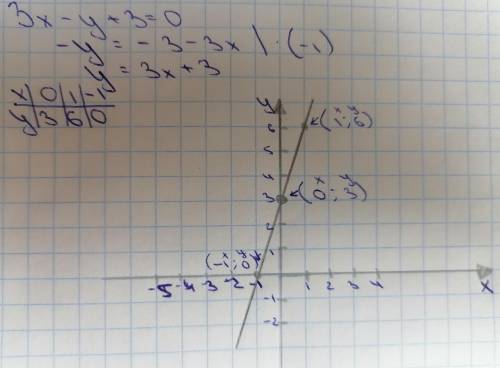 3x - y + 3 = 0
-y = -3 - 3x | · (-1)
y = 3x + 3
x 0 1 -1
y 3 6 0
y
6
x y
(1; 6)
5
4
3
x y
(0; 3)
2
1
x y
(-1; 0)
-5 -4 -3 -2 -1 1 2 3 4
x
-1
-2